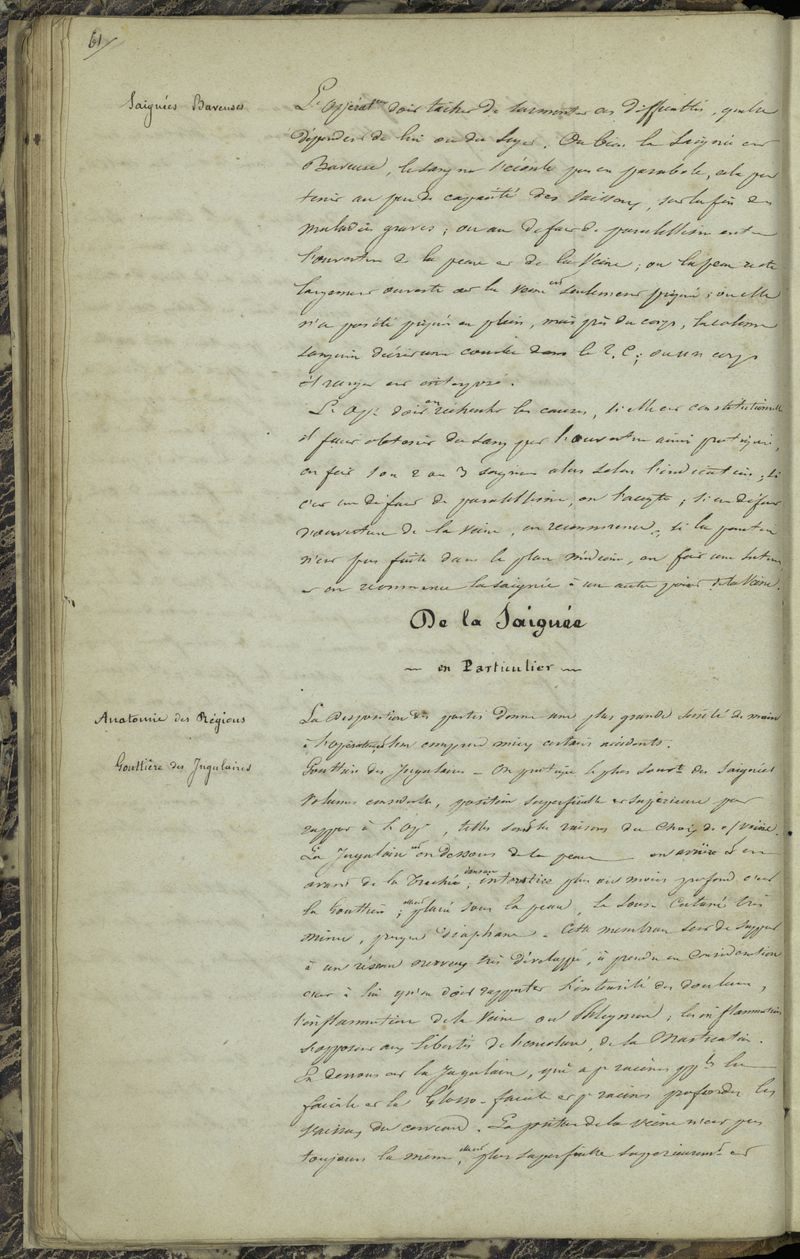 61
Saignées Baveuses
L'opérat^eur doit tâcher de surmonter ces difficultés, qu'elles
dépendent de lui ou du sujet. Ou bien la Saignée est
Baveuse, le sang ne s'écoule pas en parabole, cela peut
tenir au peu de capacité des vaisseaux, sur la fin des
maladies graves ; ou au défaut de parallélisme entre
l'ouverture de la peau et de la Veine ; ou la peau reste
largement ouverte et la veine est seulement piquée ; ou elle
n'a pas été piquée en plein, mais près du corps, la colonne
sanguine décrit une courbe dans le T. C ; ou un corps
étranger est interposé.
L'Op^r doit en rechercher les causes, si elle est constitutionnelle
il faut obtenir du sang par l'ouverture ainsi pratiquée,
on fait 1 ou 2 ou 3 saignées alors selon l'indication, si
c'est un défaut de parallélisme, on ; si un défaut
d'ouverture de la veine, on recommence, si la ponction
n'est pas faite dans le plan médian, on fait une suture
et on recommence la saignée à un autre point de la Veine.
De la Saignée
en Particulier
Anatomie des Régions
La Disposition des parties donne une plus grande sûreté de main
à l'opérateur, lui comprend mieux certains accidents.
Gouttière des Jugulaires
Gouttière des Jugulaires - On pratique le plus souv^t des Saignées
Volume considérable, position superficielle et supérieure par
rapport à l'Op^r, telles sont les raisons du choix de c/ veine.
La Jugulaire est en dessous de la peau en arrière et en
avant de la Trachée, dans un interstice plus ou moins profond c'est
la Gouttière ; placée sous la peau, le sous Cutané très
mince, presque diaphane. Cette membrane sert de support
à un réseau nerveux très développé, à prendre en Considération
c'est à lui qu'on doit rapporter l'intensité des douleurs,
l'inflammation de la Veine ou Phlegmon ; les inflammations
s'opposent aux libertés de l'encolure, de la Mastication.
En dessous est la Jugulaire, qui a p^r racines
faciale et la Glosso-faciale et p^r racines profondes les
vaisseaux du cerveau. La position de la veine n'est pas
toujours la même, plus superficielle supérieurem^t et